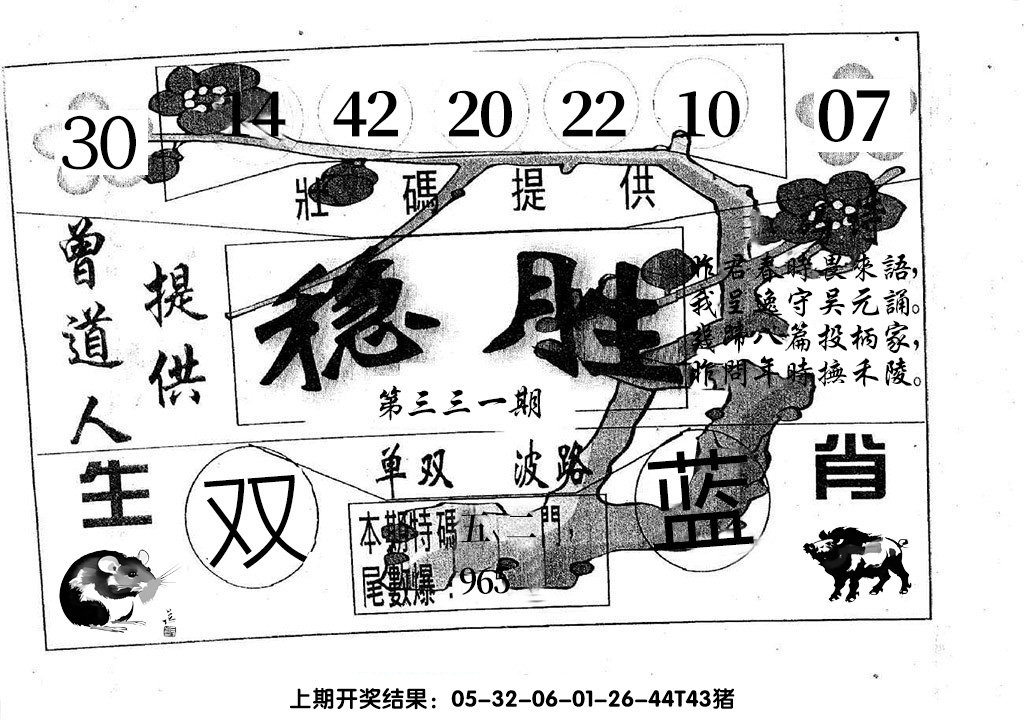 30 14 42 20 22 10 07
壯碼提供
曾道人
提供
稳胜
第三三一期
特
昨君春時畏來語，
我呈逸守吴元誦。
幾歸八篇投柄家，
昨問年時撫禾陵。
生肖
单双 波路
双
蓝
本期特碼五、二門，
尾數爆：965
上期开奖结果：05-32-06-01-26-44T43猪